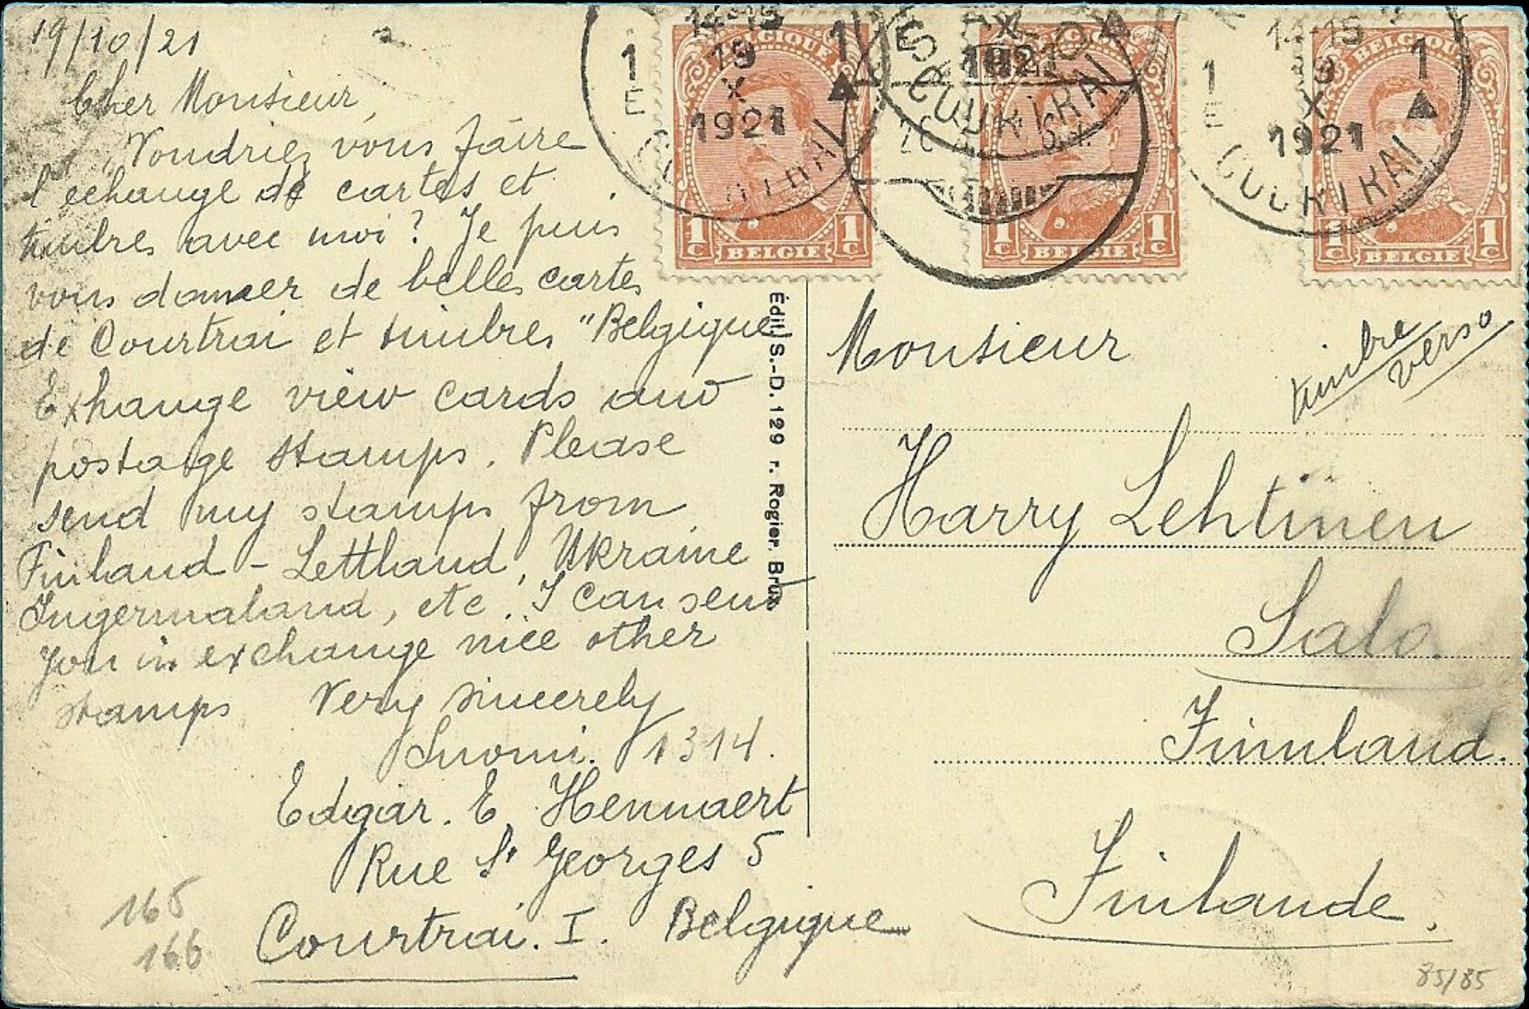 19/10/21
Cher Monsieur,
Voudriez vous faire
l'echange de cartes et
timbres avec moi? Je puis
vous donner de belles cartes
de Courtrai et timbres "Belgique
Exhange view cards and
postatge stamps. Please
send my stamps from
Finland - Lettland, Ukraine
Ingermaland, etc. I can send
you in exchange nice other
stamps Very sincerely
Suomi. 1314.
Edgar. E. Hennaert
Rue St Georges 5
Courtrai. I. Belgique
165
166
14-15
19
X
1921
1
E
1
COURTRAI
BELGIQUE
1c 1c
BELGIE
SALO
X
1921
COURTRAI
1c 1c
BELGIE
14-15
19
X
1921
1
E
1
COURTRAI
BELGIQUE
1c 1c
BELGIE
Édit. S.-D. 129 r. Rogier. Brux.
timbre
verso
Monsieur
Harry Lehtinen
Salo.
Finnland.
Finlande.
85/85